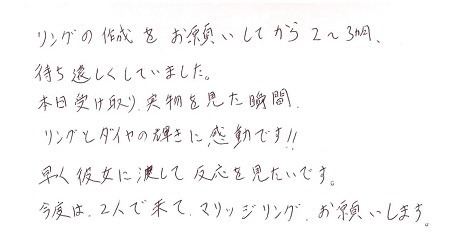 リングの作成をお願いしてから2~3ヵ月、
待ち遠しくしていました。
本日受け取り、実物を見た瞬間、
リングとダイヤの輝きに感動です!!
早く彼女に渡して反応を見たいです。
今度は、2人で来て、マリッジリング、お願いします。